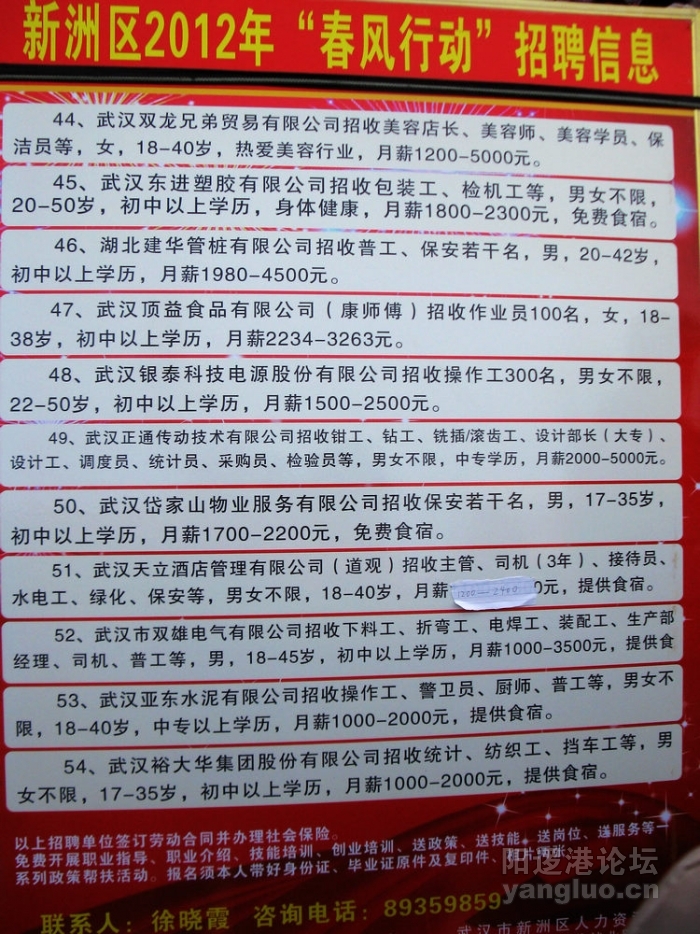 新洲区2012年“春风行动”招聘信息
44、武汉双龙兄弟贸易有限公司招收美容店长、美容师、美容学员、保
洁员等，女，18-40岁，热爱美容行业，月薪1200-5000元。
45、武汉东进塑胶有限公司招收包装工、检机工等，男女不限，
20-50岁，初中以上学历，身体健康，月薪1800-2300元，免费食宿。
46、湖北建华管桩有限公司招收普工、保安若干名，男，20-42岁，
初中以上学历，月薪1980-4500元。
47、武汉顶益食品有限公司（康师傅）招收作业员100名，女，18-
38岁，初中以上学历，月薪2234-3263元。
48、武汉银泰科技电源股份有限公司招收操作工300名，男女不限，
22-50岁，初中以上学历，月薪1500-2500元。
49、武汉正通传动技术有限公司招收钳工、钻工、铣插/滚齿工、设计部长（大专）、
设计工、调度员、统计员、采购员、检验员等，男女不限，中专学历，月薪2000-5000元。
50、武汉岱家山物业服务有限公司招收保安若干名，男，17-35岁，
初中以上学历，月薪1700-2200元，免费食宿。
51、武汉天立酒店管理有限公司（道观）招收主管、司机（3年）、接待员、
水电工、绿化、保安等，男女不限，18-40岁，月薪1200-2900元，提供食宿。
52、武汉市双雄电气有限公司招收下料工、折弯工、电焊工、装配工、生产部
经理、司机、普工等，男，18-45岁，初中以上学历，月薪1000-3500元，提供食
53、武汉亚东水泥有限公司招收操作工、警卫员、厨师、普工等，男女不
限，18-40岁，中专以上学历，月薪1000-2000元，提供食宿。
54、武汉裕大华集团股份有限公司招收统计、纺织工、挡车工等，男
女不限，17-35岁，初中以上学历，月薪1000-2000元，提供食宿。
以上招聘单位签订劳动合同并办理社会保险。
免费开展职业指导、职业介绍、技能培训、创业培训、送政策、送技能、送岗位、送服务等一
系列政策帮扶活动。报名须本人带好身份证、毕业证原件及复印件、照片两张。
联系人：徐晓霞 咨询电话：89359859
武汉市新洲区人力资
阳逻港论坛
yangluo.cn